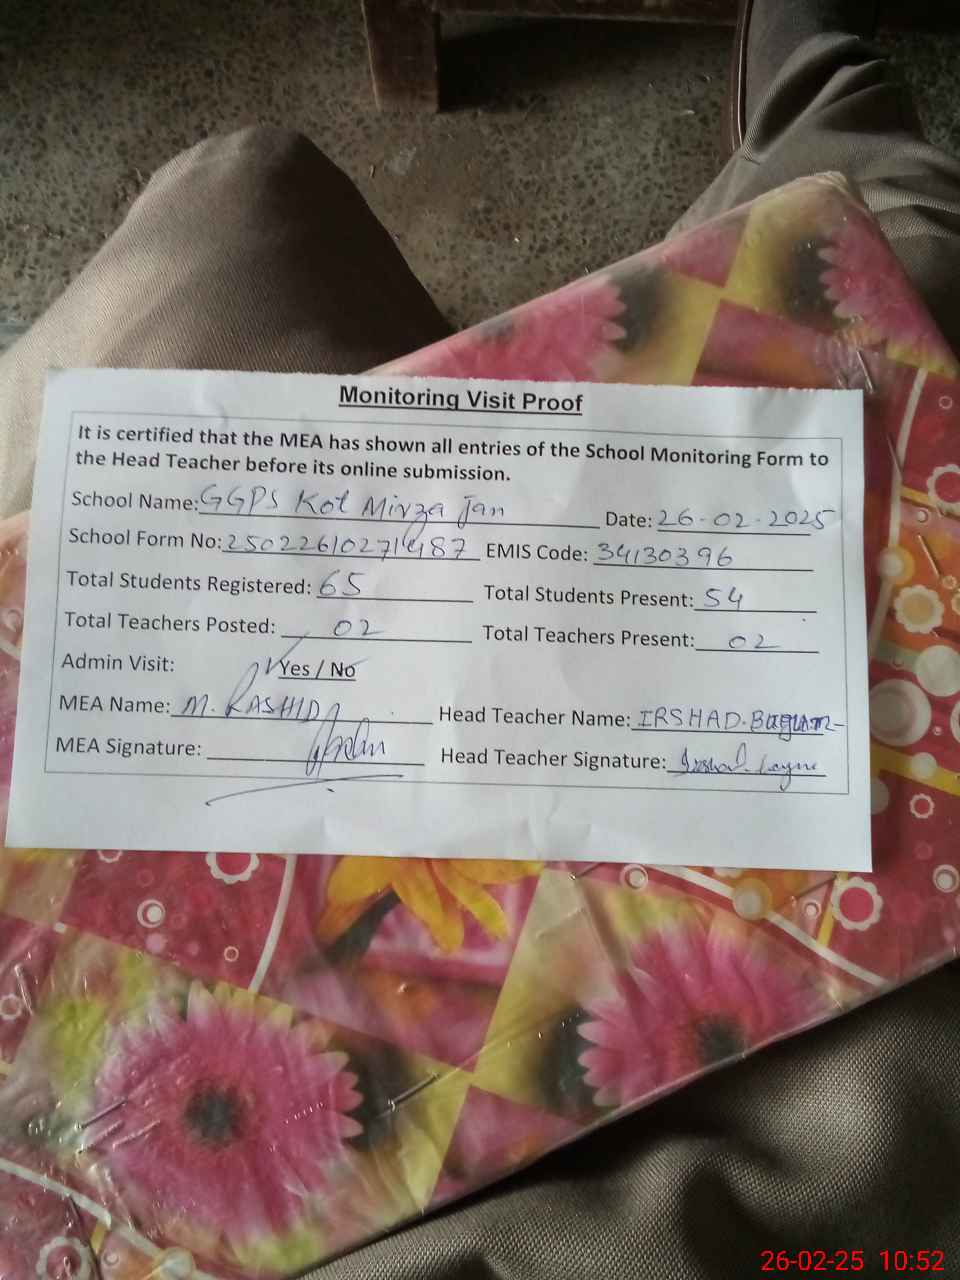 Monitoring Visit Proof
It is certified that the MEA has shown all entries of the School Monitoring Form to
the Head Teacher before its online submission.
School Name: GGPS Kot Mirza Jan Date: 26-02-2025
School Form No: EMIS Code: 34130396
Total Students Registered: 65 Total Students Present: 54
Total Teachers Posted: 02 Total Teachers Present: 02
Admin Visit: Yes / No
MEA Name: M. RASHID Head Teacher Name: IRSHAD.
MEA Signature: Head Teacher Signature:
26-02-25 10:52